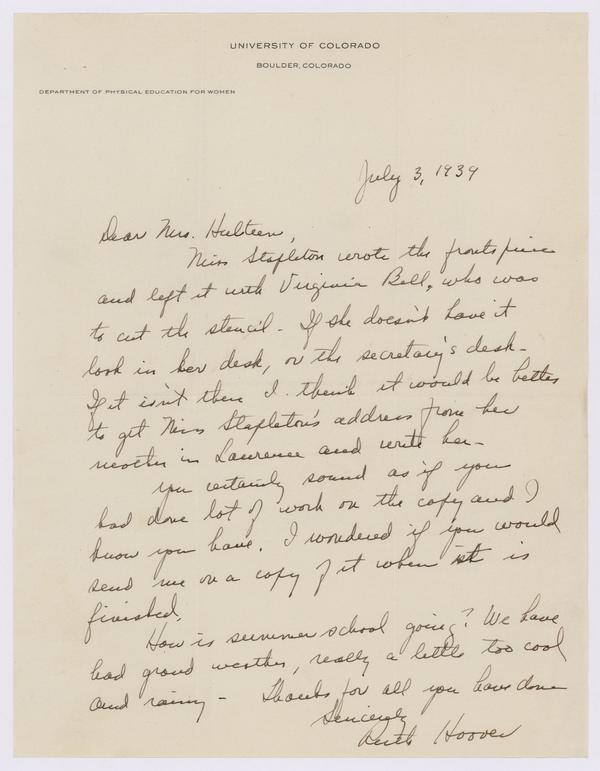 UNIVERSITY OF COLORADO
BOULDER, COLORADO
DEPARTMENT OF PHYSICAL EDUCATION FOR WOMEN
July 3, 1939
Dear Mrs. Hulteen,
Miss Stapleton wrote the frontspiece
and left it with Virginia Bell, who was
to cut the stencil - If she doesn't have it
look in her desk, or the secretary's desk -
If it isn't there I think it would be better
to get Miss Stapleton's address from her
mother in Lawrence and write her -
You certainly sound as if you
had done lot of work on the copy and I
know you have. I wondered if you would
send me on a copy of it when it is
finished.
How is summer school going? We have
had grand weather, really a little too cool
and rainy - Thanks for all you have done
Sincerely
Ruth Hoover